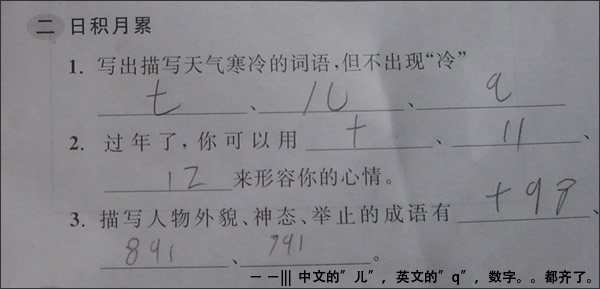 二 日积月累
1. 写出描写天气寒冷的词语,但不出现“冷”
七、儿、q
2. 过年了,你可以用 十、11、
12 来形容你的心情。
3. 描写人物外貌、神态、举止的成语有 +99、
891、791。
一 一||| 中文的”儿”，英文的”q”，数字。。都齐了。